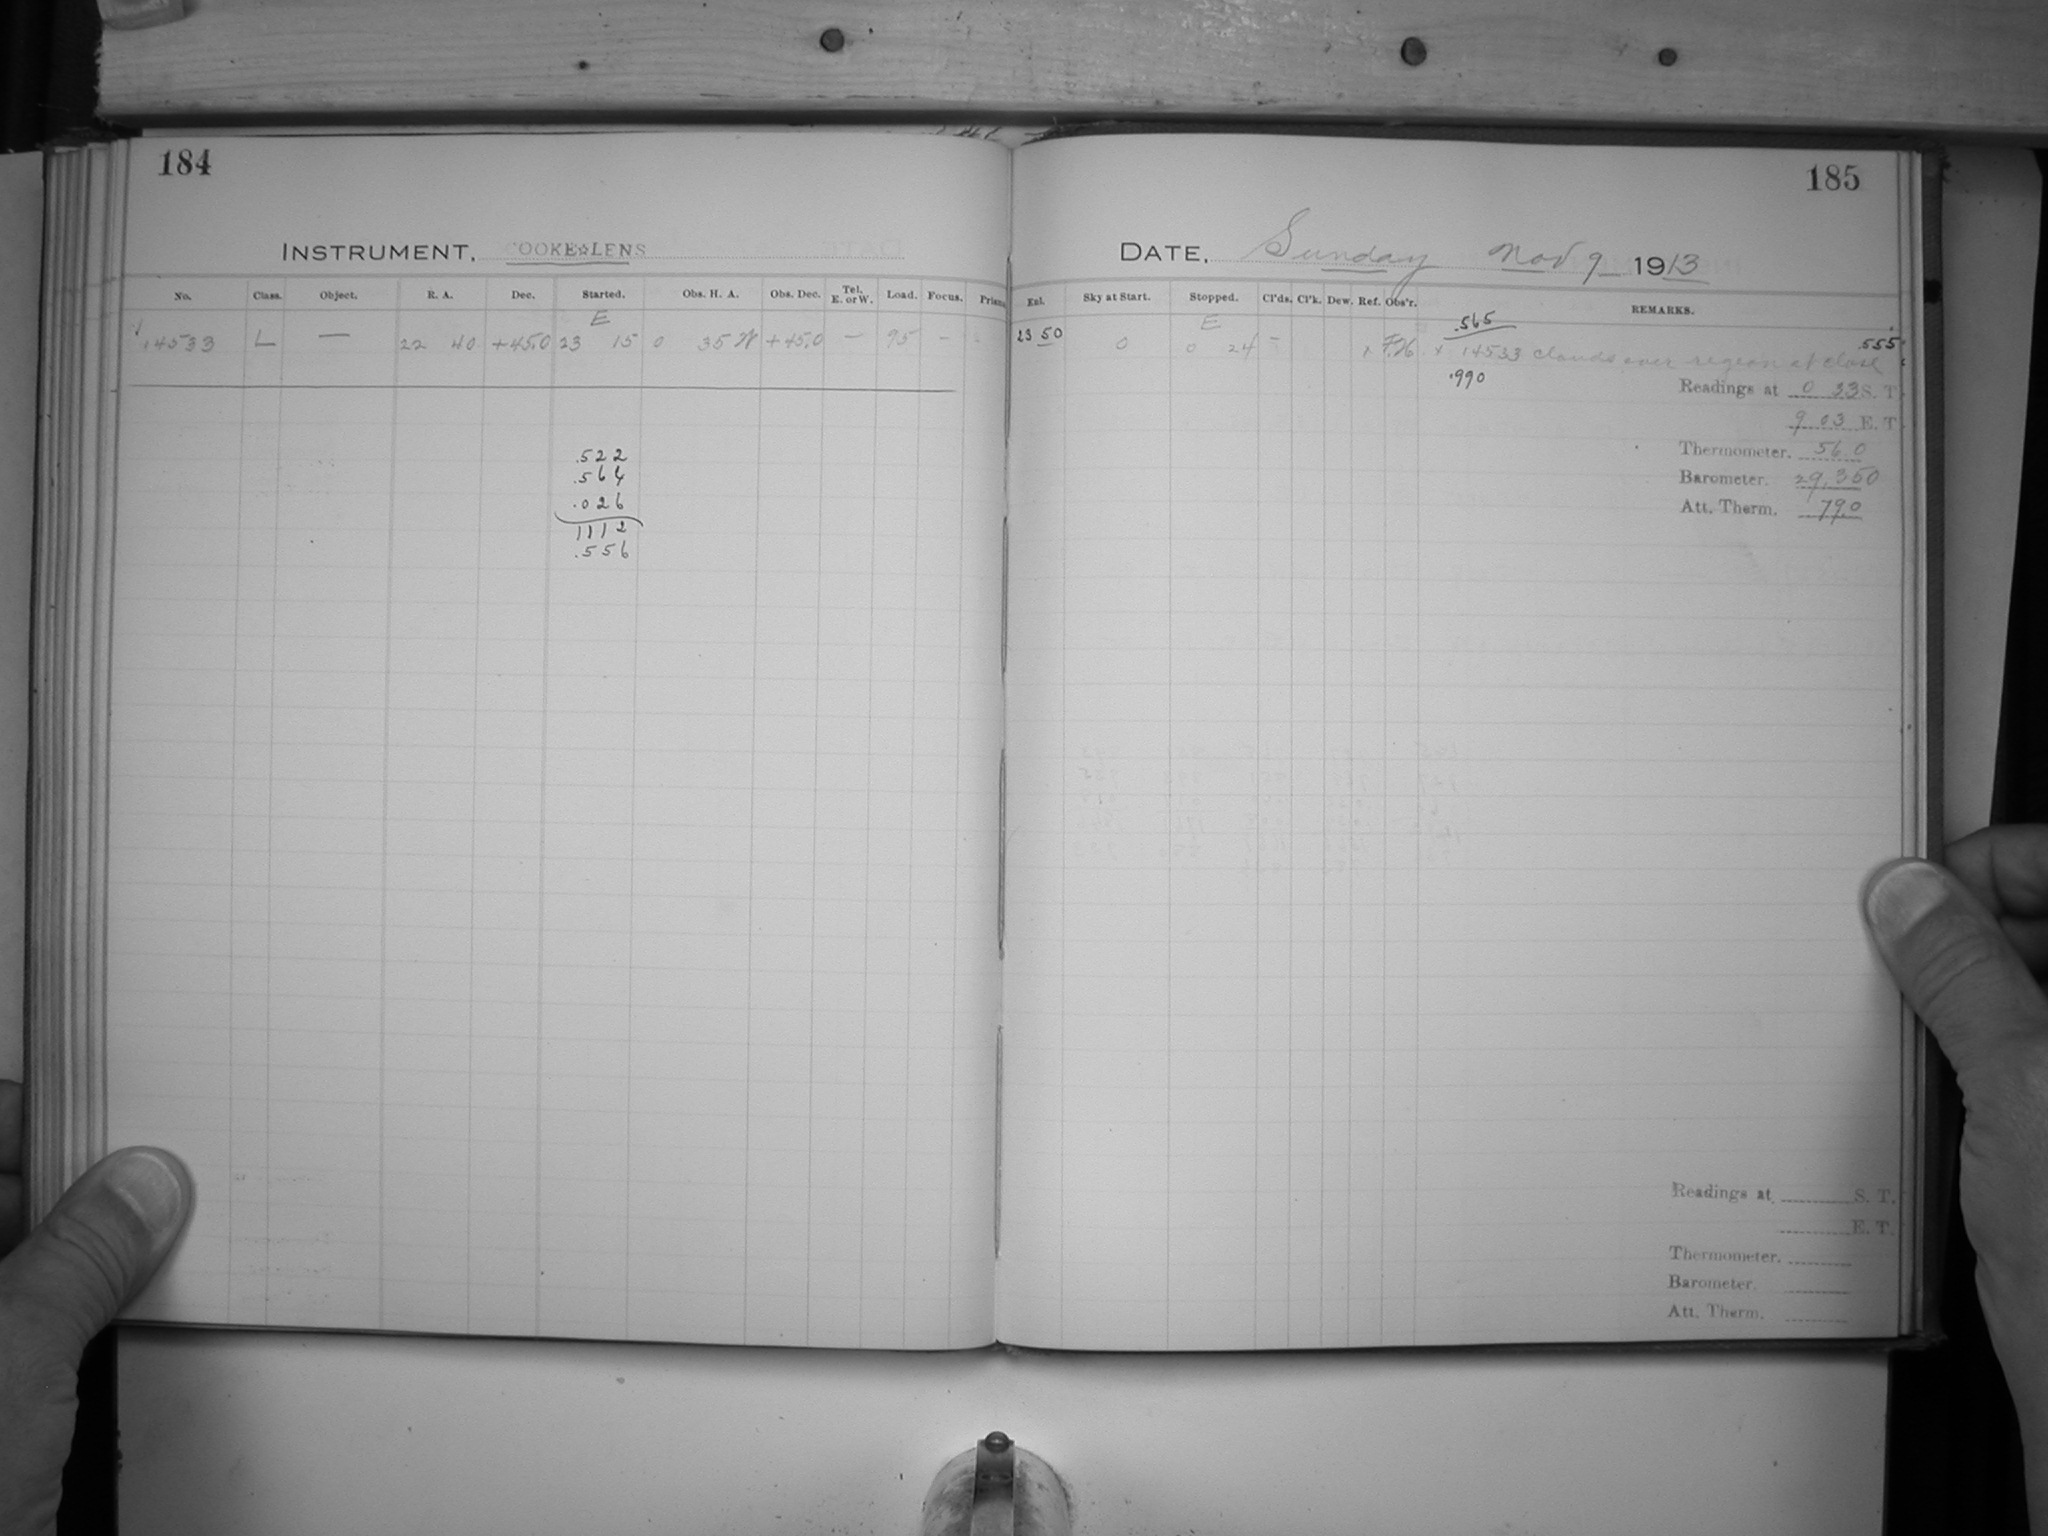 184
INSTRUMENT, COOKE☆LENS
No. Class. Object. R. A. Dec. Started. Obs. H. A. Obs. Dec. Tel. E. or W. Load. Focus. Prism
E
14533 L — 22 40 +45.0 23 15 0 35 W +45.0 — 95 –
.522
.564
.026
1112
.556
185
DATE, Sunday Nov 9 1913
Exl. Sky at Start. Stopped. Cl'ds. Cl'k. Dew. Ref. Obs'r. REMARKS.
E .565
23 50 0 0 24 – x F.H. x 14533 clouds over region at close .555
.990
Readings at 0 33 S. T.
9 03 E. T.
Thermometer. 56.0
Barometer. 29.350
Att. Therm. 79.0
Readings at S. T.
E. T.
Thermometer.
Barometer.
Att. Therm.